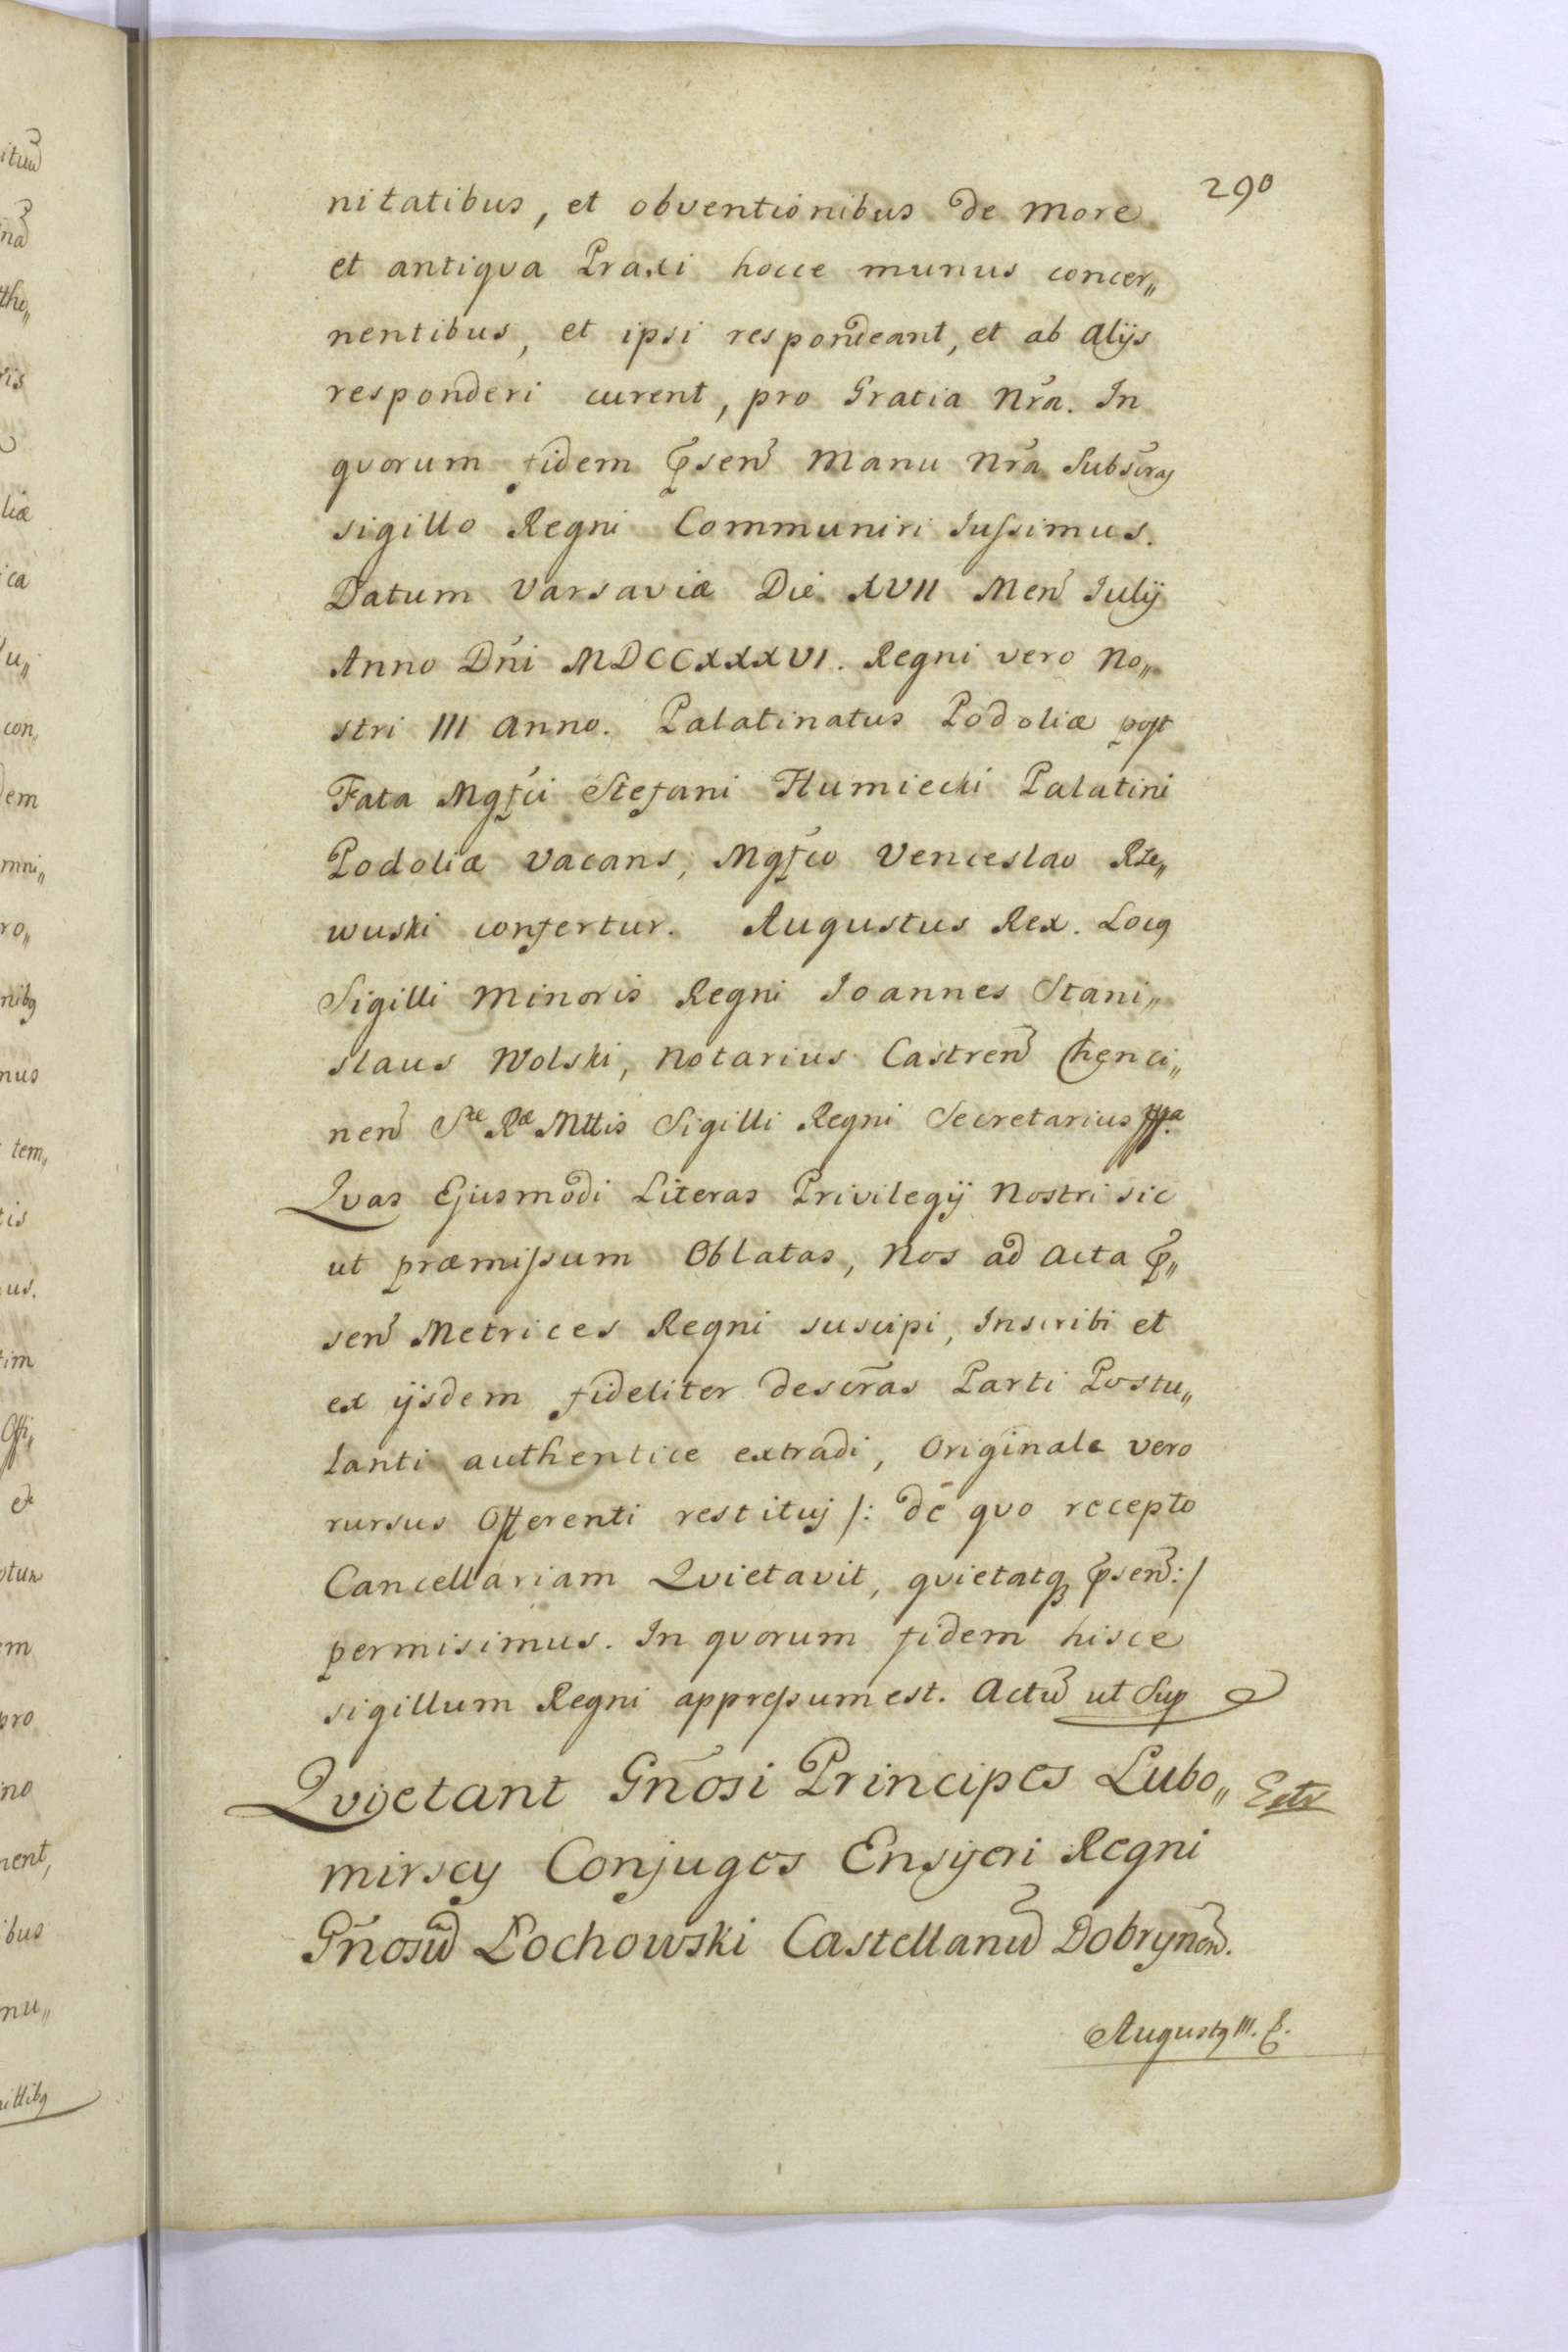 290
nitatibus, et obventionibus de more
et antiqva Praxi hocce munus concer„
nentibus, et ipsi respondeant, et ab alijs
responderi curent, pro Gratia Nr̃a. In
qvorum fidem p̃sen̄ Manu Nr̃a Subscr̃as
sigillo Regni Communiri Jussimus.
Datum Varsaviæ Die XVII Men̄ Julij
Anno Dn̄i MDCCXXXVI. Regni vero No„
stri III anno. Palatinatus Podoliæ post
Fata Mgf̃ci Stefani Humiecki Palatini
Podoliæ vacans, Mgf̃co Venceslao Rze„
wuski confertur. Augustus Rex. Locq
Sigilli Minoris Regni Joannes Stani„
slaus Wolski, Notarius Castren̄ Chenci„
nen̄ Sæ Ræ Mttis Sigilli Regni Secretarius
Qvas Ejusmodi Literas Privilegij Nostri sic
ut præmissum Oblatas, Nos ad Acta p̃„
sen̄ Metrices Regni suscipi, Inscribi et
ex ijsdem fideliter descr̃as Parti Postu„
lanti authentice extradi, Originale vero
rursus Offerenti restituj /: de qvo recepto
Cancellariam Qvietavit, qvietatq̨ p̃sen̄:/
permisimus. In qvorum fidem hisce
sigillum Regni appressum est. Actū ut Sup
Qvijetant Gn̄osi Principes Lubo„
mirscy Conjuges Ensyeri Regni
Gn̄osū Łochowski Castellanū Dobrynen̄.
Augustq III. R.